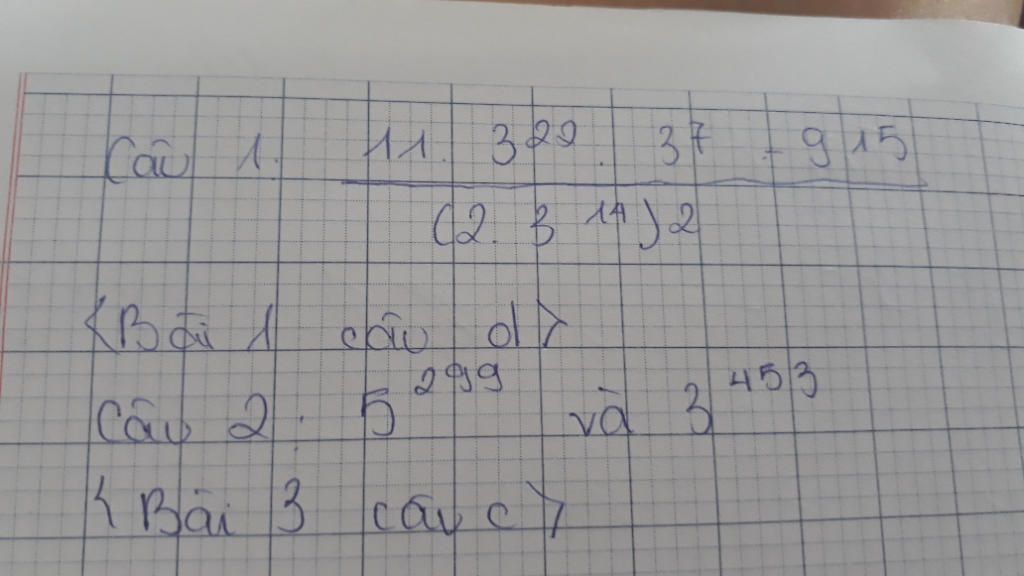 Câu 1. 11. 3²². 3⁷ - 9¹⁵
(2. 3¹⁴)2
<Bài 1 câu d>
Câu 2: 5²⁹⁹ và 3⁴⁵³
<Bài 3 câu c>